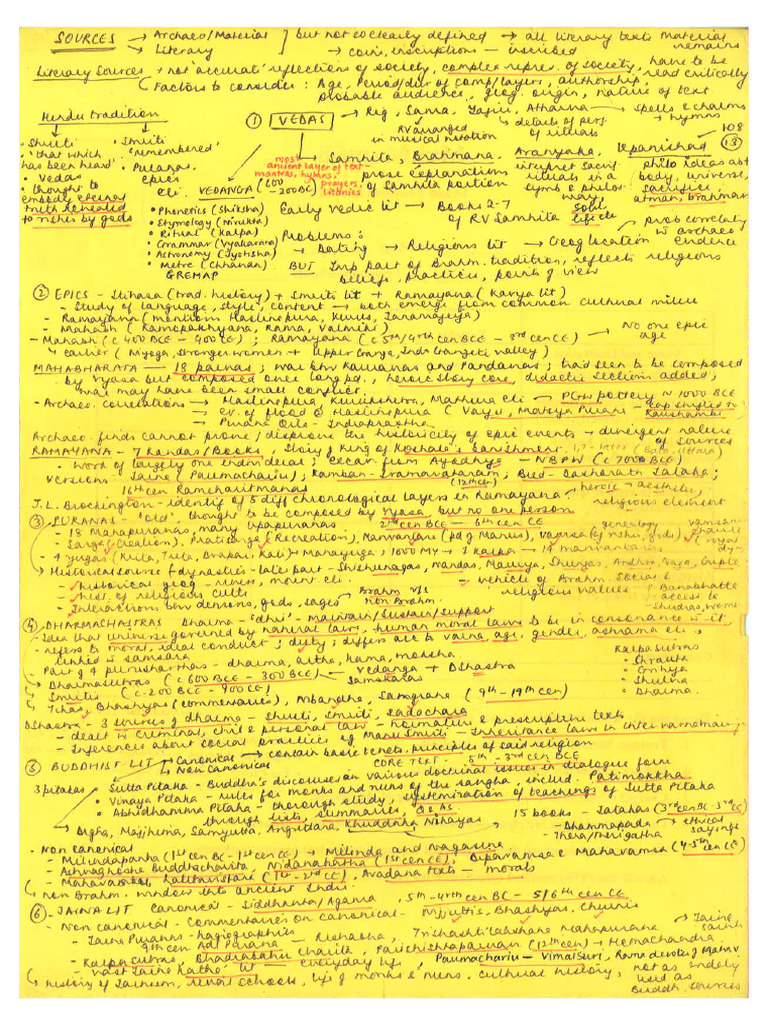 SOURCES → Archaeo/Material ] but not so clearly defined → all literary texts material remains
→ Literary → coins, inscriptions – inscribed
Literary Sources → not 'accurate' reflections of society, complex repres. of society, have to be read critically
Factors to consider : Age, Period/dur of comp/layers, authorship,
probable audience, geog. origin, nature of text
Hindu tradition
Shruti
'that which has been heard'
Vedas
thought to embody eternal truth revealed to rishis by gods
Smriti
'remembered'
Puranas, epics etc.
① VEDAS → Rig, Sama, Yajur, Atharva → spells & charms
→ hymns
RV arranged in musical notation
→ details of perf. of rituals
→ Samhita, Brahmana, Aranyaka, Upanishad 108 (13)
most ancient layer of text – mantras, hymns, prayers, litanies
prose explanations of Samhita portion
interpret sacrif. rituals in a symb & philos. way
philo ideas abt body, universe, sacrifice, atman, brahman
soul
life cycle
VEDANGA (600 – 200 BC)
• Phonetics (Shiksha)
• Etymology (Nirukta)
• Ritual (Kalpa)
• Grammar (Vyakarana)
• Astronomy (Jyotisha)
• Metre (Chhanda)
GREMAP
Early Vedic lit → Books 2-7 of RV Samhita
Problems :
→ Dating → Religious lit → Geog location → prob correlating w archaeo evidence
BUT Imp part of Brahm. tradition, reflects religious beliefs, practices, points of view
② EPICS – Itihasa (trad. history) + Smriti lit + Ramayana (Kavya lit)
- Study of language, style, content → both emerge from common cultural milieu
- Ramayana (mentions Hastinapura, Kurus, Janamejaya)
- Mahabh (Ramopakhyana, Rama, Valmiki)
- Mahabh (c 400 BCE – 400 CE) ; Ramayana (c 5th/4th cen BCE – 3rd cen CE) → No one epic age
↳ earlier (Niyoga, stronger women + upper Ganga, Indo Gangetic valley)
MAHABHARATA – 18 parvas ; war btw Kauravas and Pandavas ; trad seen to be composed
by Vyasa but composed over long pd., heroic story core, didactic sections added,
war may have been small conflict.
- Archaeo. correlations → Hastinapura, Kurukshetra, Mathura etc → PGW pottery ≈ 1000 BCE
→ ev. of flood @ Hastinapura (Vayu, Matsya Purana – cap shifted to Kaushambi
→ Purana Qila – Indraprastha
Archaeo. finds cannot prove / disprove the historicity of epic events → divergent nature of sources
RAMAYANA – 7 Kandas / Books, Story of King of Koshala's banishment.
- work of largely one individual ; excav from Ayodhya – NBPW (c 7000 BCE)
versions – Jaina (Paumachariu) ; Kamban – Iramavataram (12th cen) ; Bud – Dasharath Jataka ;
16th cen Ramcharitmanas
J.L. Brockington – identif of 5 diff chronological layers in Ramayana → heroic → aesthetic, religious element
③ PURANAS – 'old', thought to be composed by Vyasa but no one person
- 18 Mahapuranas, many Upapuranas 2nd cen BCE – 6th cen CE
- Sarga (Creation), Pratisarga (Recreation), Manvantara (pd of Manus), Vamsa (of rishis, gods)
genealogy
- 4 yugas (Krita, Treta, Dvapar, Kali) → Mahayuga ; 1000 MY → 1 Kalpa → 14 manvantaras
→ Historical source of dynasties – later part – Shishunagas, Nandas, Maurya, Shungas, Andhra, Naga, Gupta
- historical geog – rivers, mount etc.
- hist. of religious cults
- Interactions btw demons, gods, sages → Brahm v/s Non Brahm
→ vehicle of Brahm. social & religious values
④ DHARMASHASTRAS Dharma – 'dhri' – maintain/sustain/support
- Idea that universe governed by natural laws, human moral laws to be in consonance w it
- refers to moral, ideal conduct ; duty ; differs acc to varna, age, gender, ashrama etc. ;
linked w samsara
- Part of 4 purusharthas – dharma, artha, kama, moksha
- Dharmasutras (c 600 BCE – 300 BCE) → Vedanga + Dhastra
- Smritis (c. 200 BCE – 900 CE)
- Tikas, Bhashyas (commentaries), Nibandha, Samgraha (9th – 19th cen)
Kalpasutras
• Shrauta
• Grihya
• Shulva
• Dharma.
Dhastra – 3 sources of dharma – shruti, smriti, sadachara
- dealt w criminal, civil & personal law – normative & prescriptive texts
- Inferences about social practices
⑤ BUDDHIST LIT → Canonical → contain basic tenets, principles of said religion
→ Non Canonical CORE TEXT – 5th – 3rd cen BCE
3 pitakas → Sutta Pitaka – Buddha's discourses on various doctrinal issues in dialogue form
→ Vinaya Pitaka – rules for monks and nuns of the sangha, includ. Patimokkha
→ Abhidhamma Pitaka – thorough study, systemization of teachings of Sutta Pitaka
through lists, summaries, Q & As
→ Digha, Majjhima, Samyutta, Anguttara, Khuddaka Nikayas
15 books – Jatakas (3rd cen BC – 2nd CE)
- Dhammapada → ethical sayings
- Thera/Therigatha
- Non canonical
- Milindapanha (1st cen BC – 1st cen CE) → Milinda and Nagasena
- Ashvaghosha Buddhacharita, Nidanakatha (1st cen CE), Dipavamsa & Mahavamsa (4-5th cen CE)
- Mahavastu, Lalitavistara (1st – 2nd CE), Avadana texts – morals
↳ non Brahm. window into ancient Indi.
⑥ – JAINA LIT Canonical – Siddhanta/Agama, 5th – 4th cen BC – 5/6th cen CE
- Non canonical – Commentaries on canonical – Nijjuttis, Bhashyas, Churnis
- Jaina Puranas – hagiographies → Jaina saints
9th cen Adi Purana – Rishabha, Trishashtilakshana Mahapurana
- Kalpa sutras, Bhadrabahu charita, Parishishtaparvan (12th cen) → Hemachandra
- vast Jaina Katha lit – everyday life, Paumachariu – Vimalsuri, Rama devotee of Main V
↳ history of Jainism, rival schools, life of monks & nuns, cultural history, not as widely used as Buddh. sources